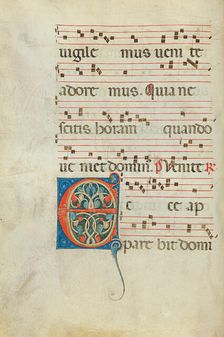 uigile mus ueni te
adore mus. Quia ne
scitis horam quando
ue niet domin. Ps Venite R
Ecce ap
pare bit domi